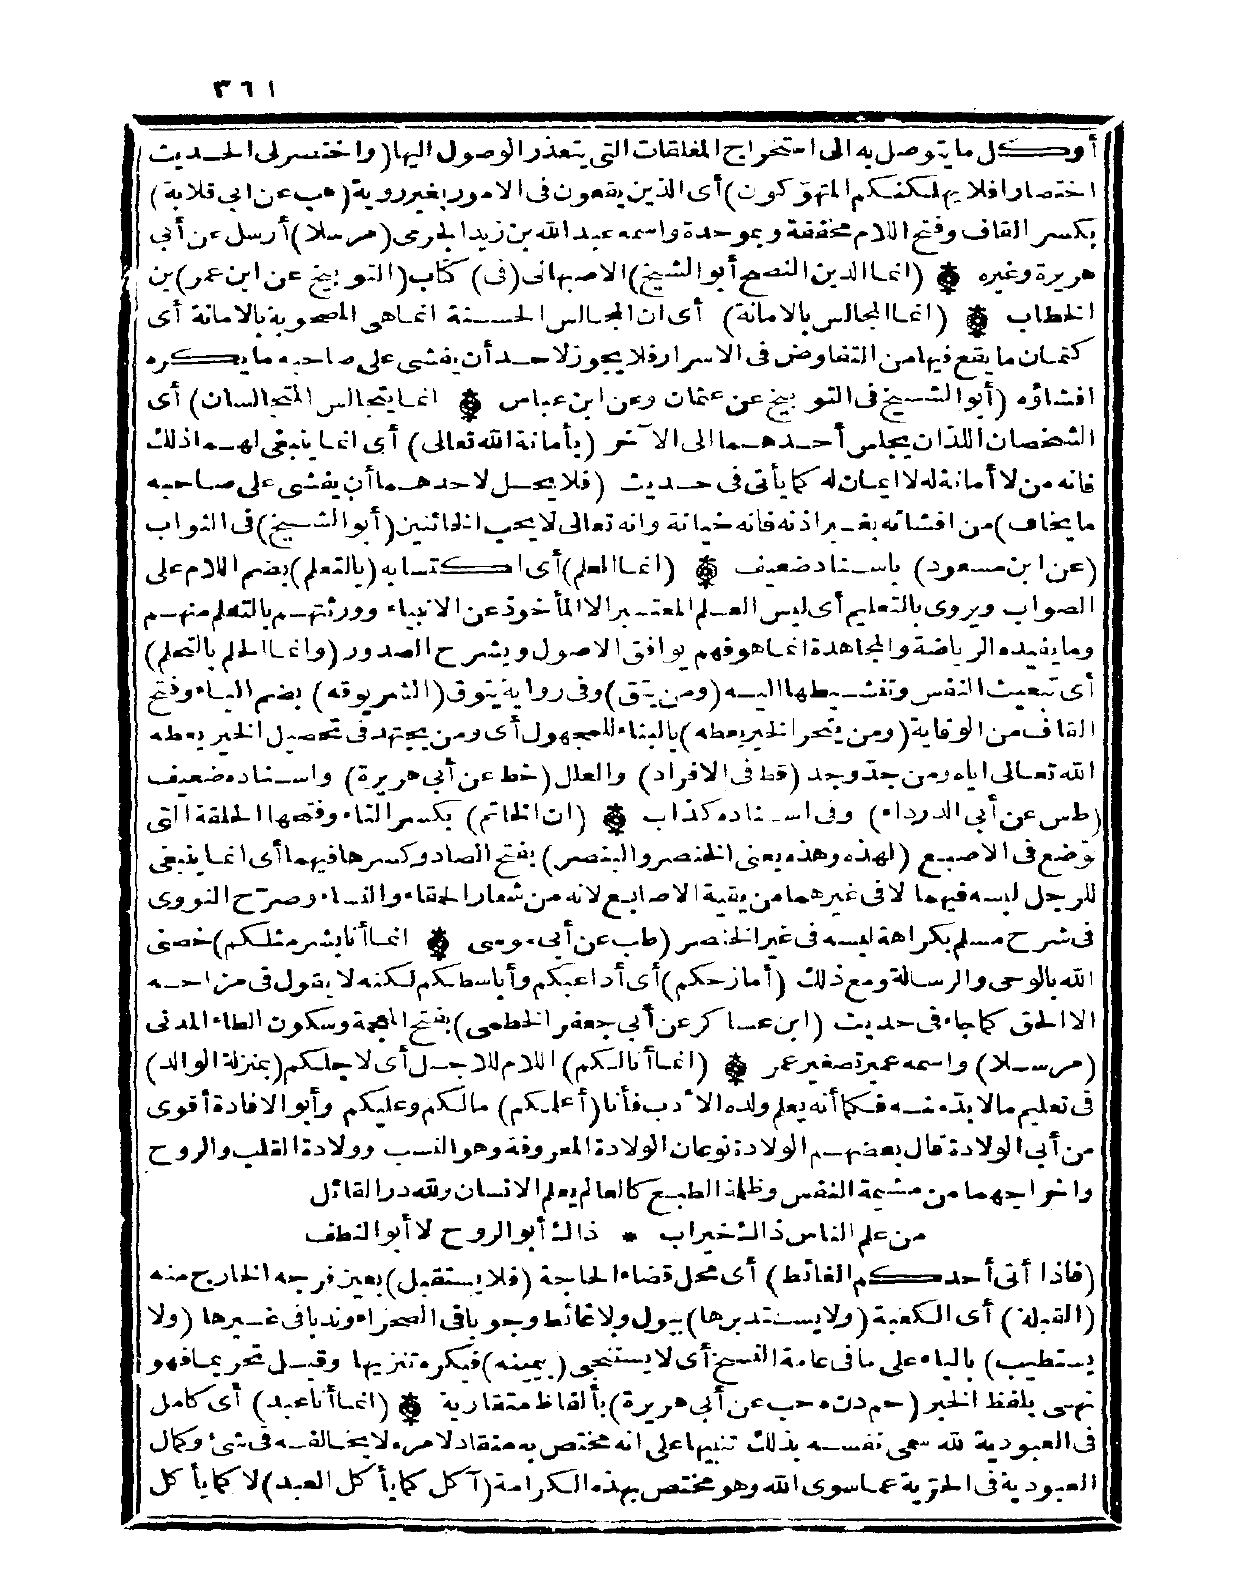 ٣٦١
أو كل ما يتوصل به الى استخراج المغلقات التى يتعذر الوصول اليها (واختصر لى الحديث
اختصارا فلا يهلكنكم المتهوّكون) أى الذين يقعون فى الامور بغير روية (هب عن ابى قلابة)
بكسر القاف وفتح اللام مخففة وبموحدة واسمه عبد الله بن زيد الجرمى (مرسلا) أرسل عن أبى
هريرة وغيره ۞ (انما الدين النصح أبو الشيخ) الاصبهانى (فى) كتاب (التوبيخ عن ابن عمر) بن
الخطاب ۞ (انما المجالس بالامانة) أى ان المجالس الحسنة انما هى المصحوبة بالامانة أى
كتمان ما يقع فيها من التفاوض فى الاسرار فلا يجوز لاحد أن يفشى على صاحبه ما يكره
افشاؤه (أبو الشيخ فى التوبيخ عن عثمان وعن ابن عباس ۞ انما يتجالس المتجالسان) أى
الشخصان اللذان يجلس أحدهما الى الآخر (بأمانة الله تعالى) أى انما ينبغى لهما ذلك
فانه من لا أمانة له لا ايمان له كما يأتى فى حديث (فلا يحل لاحدهما أن يفشى على صاحبه
ما يخاف) من افشائه بغير اذنه فانه خيانة وانه تعالى لا يحب الخائنين (أبو الشيخ) فى الثواب
(عن ابن مسعود) باسناد ضعيف ۞ (انما العلم) أى اكتسابه (بالتعلم) بضم اللام على
الصواب ويروى بالتعليم أى ليس العلم المعتبر الا المأخوذ عن الانبياء وورثتهم بالتعلم منهم
وما يفيده الرياضة والمجاهدة انما هو فهم يوافق الاصول ويشرح الصدور (وانما الحلم بالتحلم)
أى تبعيث النفس وتنشيطها اليه (ومن يتق) وفى رواية يتوق (الشر يوقه) بضم الياء وفتح
القاف من الوقاية (ومن يتحر الخير يعطه) بالبناء للمجهول أى ومن يجتهد فى تحصيل الخير يعطه
الله تعالى اياه ومن جدّ وجد (قط فى الافراد) والعلل (خط عن أبى هريرة) واسناده ضعيف
(طس عن أبى الدرداء) وفى اسناده كذاب ۞ (ان الخاتم) بكسر التاء وفتحها الحلقة التى
توضع فى الاصبع (لهذه وهذه يعنى الخنصر والبنصر) بفتح الصاد وكسرها فيهما أى انما ينبغى
للرجل لبسه فيهما لا فى غيرهما من بقية الاصابع لانه من شعار الحمقاء والنساء وصرّح النووى
فى شرح مسلم بكراهة لبسه فى غير الخنصر (طب عن أبى موسى ۞ انما أنا بشر مثلكم) خصنى
الله بالوحى والرسالة ومع ذلك (أمازحكم) أى أداعبكم وأباسطكم لكنه لا يقول فى مزاحه
الا الحق كما جاء فى حديث (ابن عساكر عن أبى جعفر الخطمى) بفتح المعجمة وسكون الطاء المدنى
(مرسلا) واسمه عمير تصغير عمر ۞ (انما أنا لكم) اللام للاجل أى لاجلكم (بمنزلة الوالد)
فى تعليم ما لا بدّ منه فكما أنه يعلم ولده الادب فأنا (أعلمكم) ما لكم وعليكم وأبو الافادة أقوى
من أبى الولادة قال بعضهم الولادة نوعان الولادة المعروفة وهو النسب وولادة القلب والروح
واخراجهما من مشيمة النفس وظلمة الطبع كالعالم يعلم الانسان ولله در القائل
من علم الناس ذاك خير اب * ذاك أبو الروح لا أبو النطف
(فاذا أتى أحدكم الغائط) أى محل قضاء الحاجة (فلا يستقبل) بعين فرجه الخارج منه
(القبلة) أى الكعبة (ولا يستدبرها) ببول ولا غائط وجوبا فى الصحراء وندبا فى غيرها (ولا
يستطيب) بالياء على ما فى عامة النسخ أى لا يستنجى (بيمينه) فيكره تنزيها وقيل تحريما فهو
نهى بلفظ الخبر (حم د ن ه حب عن أبى هريرة) بألفاظ متقاربة ۞ (انما أنا عبد) أى كامل
فى العبودية لله سمى نفسه بذلك تنبيها على انه مختص به منقاد لامره لا يخالفه فى شئ وكمال
العبودية فى الحرّية عما سوى الله وهو مختص بهذه الكرامة (آكل كما يأكل العبد) لا كما يأكل